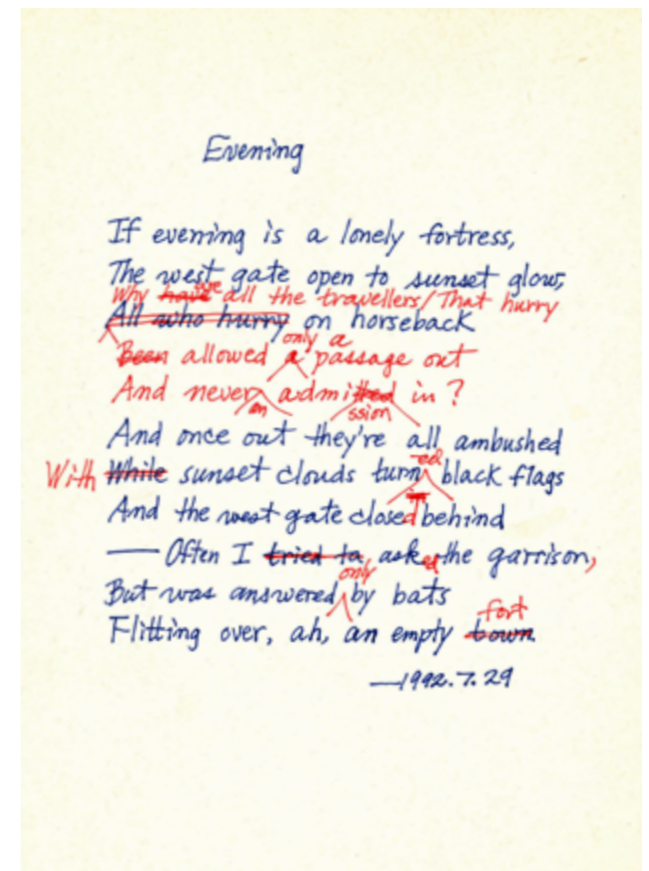 Evening
If evening is a lonely fortress,
The west gate open to sunset glow,
Why have are all the travellers/That hurry
All who hurry on horseback
Been allowed a only a passage out
And never an admitted ssion in?
And once out they're all ambushed
With While sunset clouds turn ed black flags
And the west gate closed behind
— Often I tried to asked the garrison,
But was answered only by bats
Flitting over, ah, an empty town fort
—1992.7.29